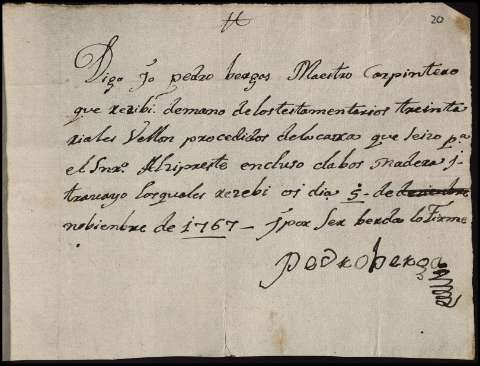 20
Digo jo pedro bergos Maestro Carpintero
que rezibi demano de los testamentarios treinta
riales Vellon procedidos de la caxa que seizo pa
el Snro Alripreste encluso clabos madera j
travayo los quales rezebi oi dia 5 - de deziembre
nobiembre de 1767 - j por ser berda lo Firme
Pedro berga